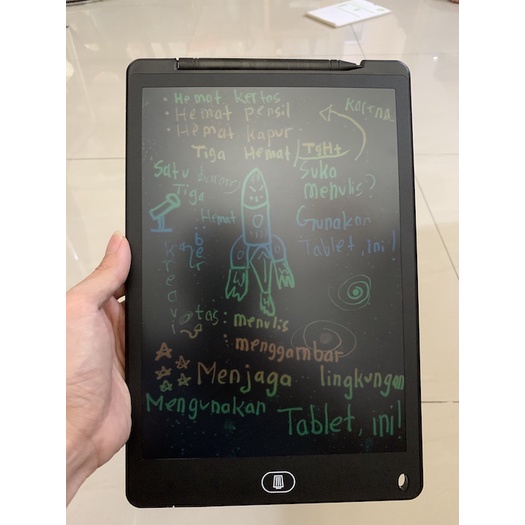 • Hemat kertas
• Hemat pensil
• Hemat kapur
Karena
Tiga Hemat / TgHt
Satu
Tiga
Hemat
Suka
menulis?
Gunakan
Tablet, ini!
tas : menulis
: menggambar
Menjaga lingkungan
Mengunakan Tablet, ini!